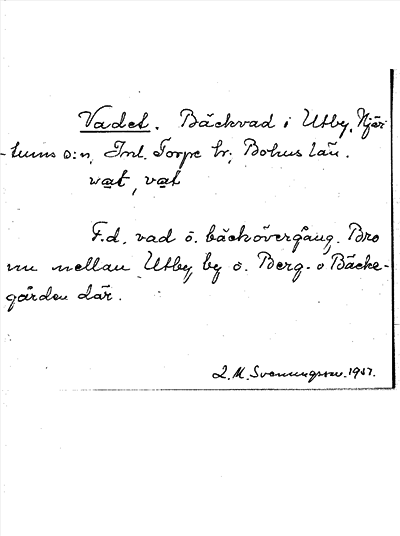 Vadet. Bäckvad i Utby, Njär-
tums s:n, Inl. Torpe hr, Bohus län.
wat, vat
F.d. vad o. bäckövergång. Bro
nu mellan Utby, by o. Berg- o Bäcke-
gården där.
L. M. Svenungsson. 1957.